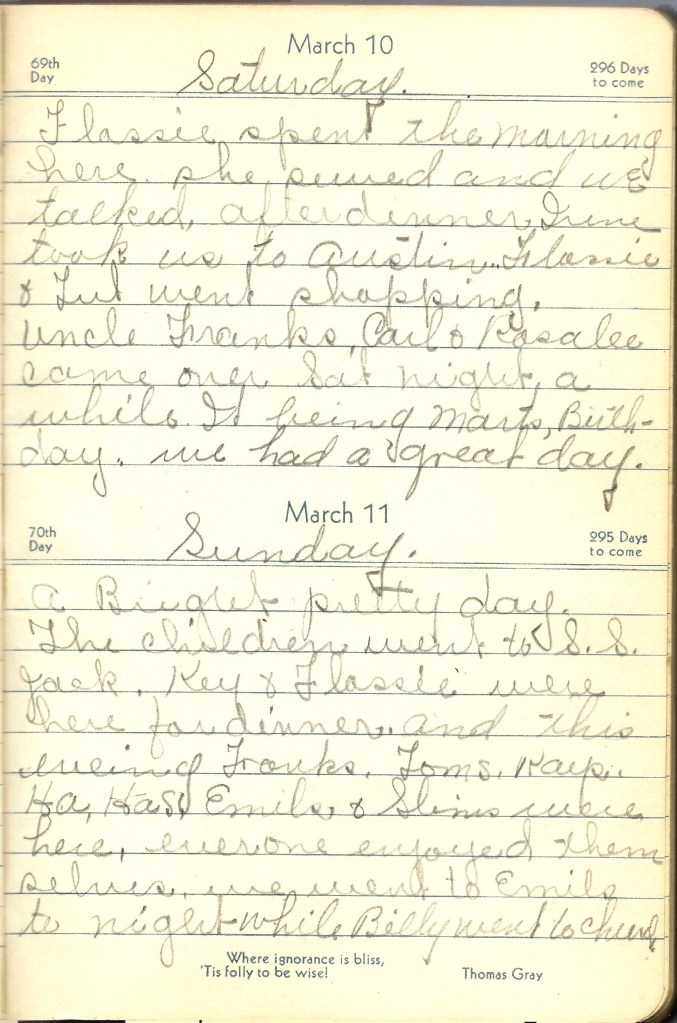 March 10
69th Day
296 Days to come
Saturday.
Flossie spent the morning
here. she sewed and we
talked, after dinner, Irene
took us to Austin. Flossie
& Lut went shopping.
Uncle Franks, Carl & Rosalee
came over Sat night, a
while. It being Marts, Birth-
day. we had a great day.
March 11
70th Day
295 Days to come
Sunday.
a Bright pretty day.
The children went to S. S.
Jack. Key & Flossie were
here for dinner. and this
eveing Franks. Toms.
Emils & Slims were
here, everone enjoyed them
selves. we went to Emils
to night while Billy went to
Where ignorance is bliss,
'Tis folly to be wise!
Thomas Gray